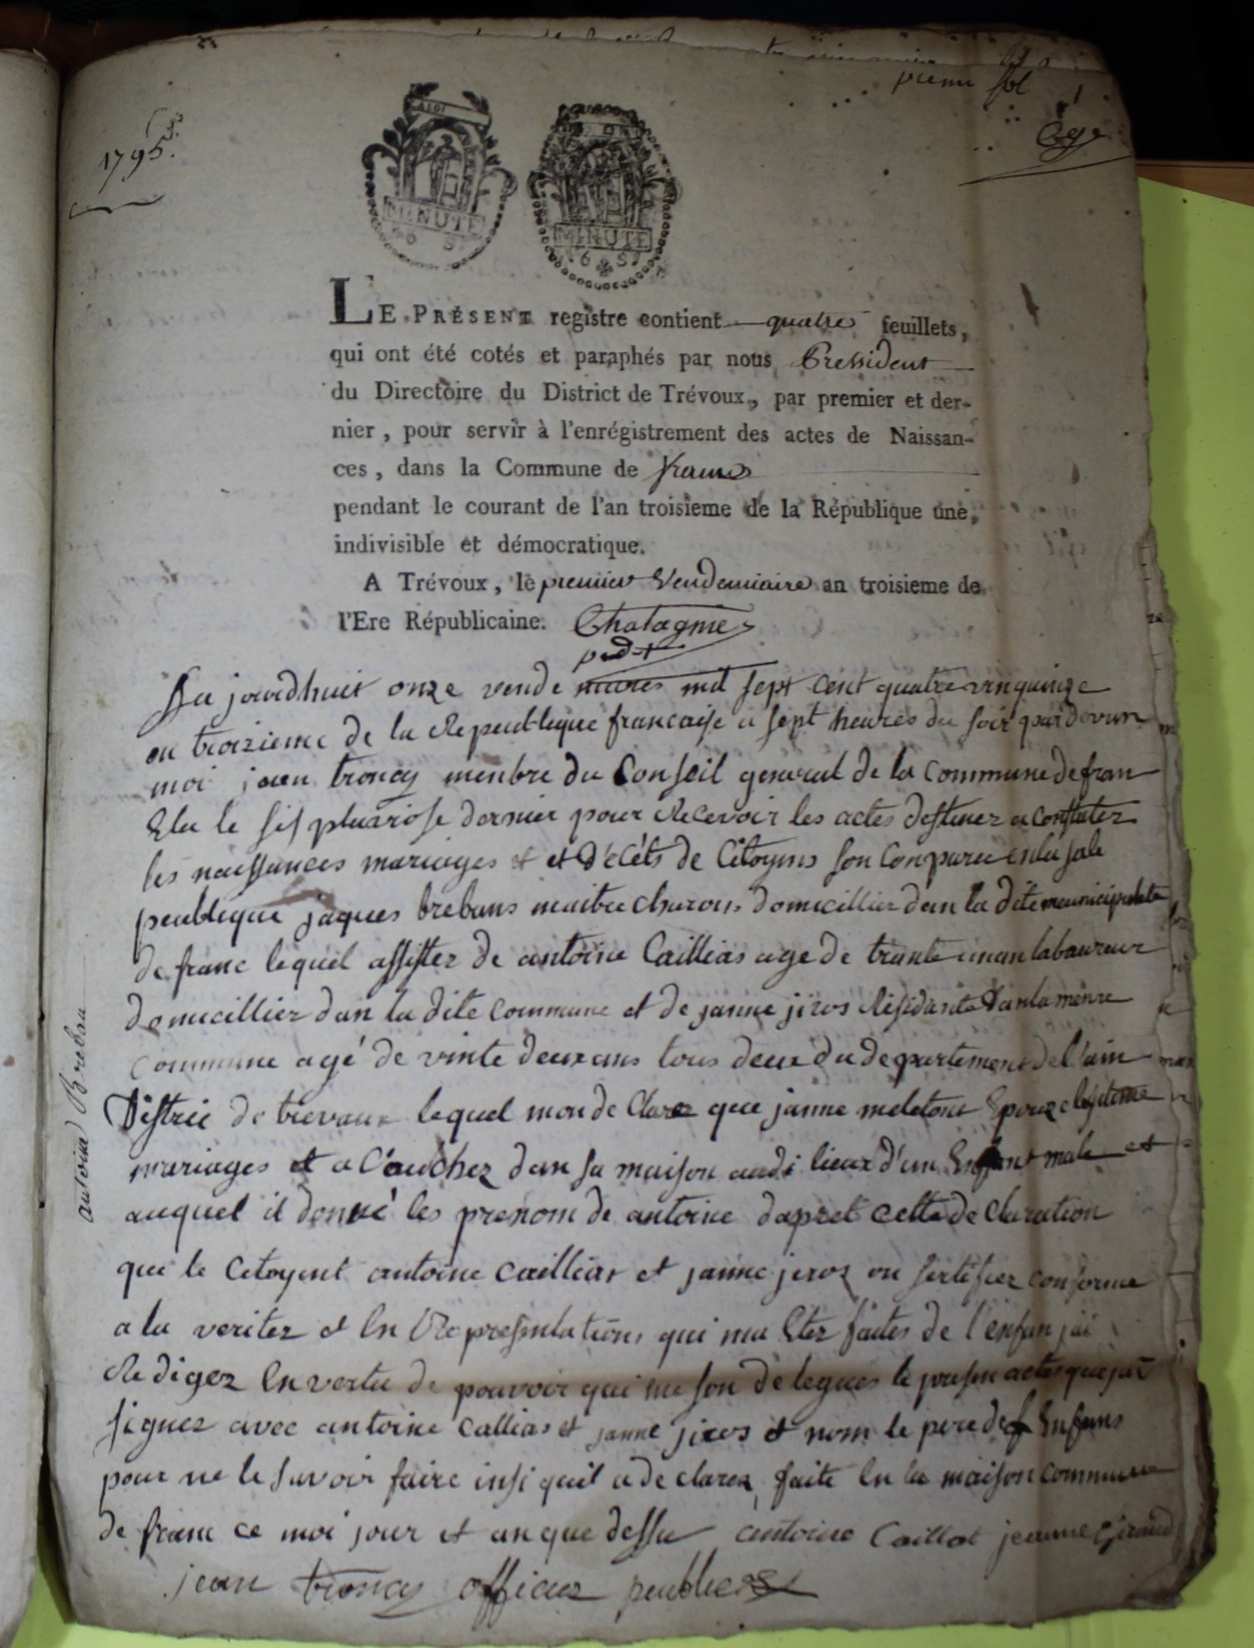 premier fol
1
1795.
MINUTE
MINUTE
LE PRÉSENT registre contient quatre feuillets,
qui ont été cotés et paraphés par nous Pressident
du Directoire du District de Trévoux, par premier et der-
nier, pour servir à l'enrégistrement des actes de Naissan-
ces, dans la Commune de frans
pendant le courant de l'an troisieme de la République une,
indivisible et démocratique.
A Trévoux, le premier Vendemiaire an troisieme de
l'Ere Républicaine. Chatagnier
pdt
Au jourdhuit onze vende miaires mil sept cent quatre vin quinze
en troizieme de la Republique francaise a sept heures du soir par devan
moi jean troncy menbre du Conseil general de la commune de fran
Elu le sis pluviose dernier pour Recevoir les actes destinez a constater
les naissances mariages et et Décéts de Citoyens son conparu en la sale
peublique jaques breban maitre charons domicillier dan la dite meunicipalite
de franc lequel assister de antoine Cailliás age de trante un an labaureur
domicillier dan la dite commune et de janne jiros Residante dan la mème
commune agé de vinte deux ans tous deux du departement de l'ain
District de trevoux lequel mon de Clarez que janne meleton Epouze legitime
mariages et a Cauchez dan sa maison audi lieux d'un Enfant male et
auquel il donné les prenom de antoine dapret cette de claration
que le Citoyent antoine cailliár et janne jeroz on sertifier conforme
a la veritez et En Representations qui ma Etez faites de l'enfan jai
Redigez En vertu de pouvoir qui me son délegues le presen actes que jai
signez avec antoine callias et janne jiros et nom le pere de Enfans
pour ne le savoir faire insi quil a de clarez, faite En la maison commune
de franc ce moi jour et an que dessu antoine Caillat jeanne Giraud
jean troncy officier peublic
antoine Breban